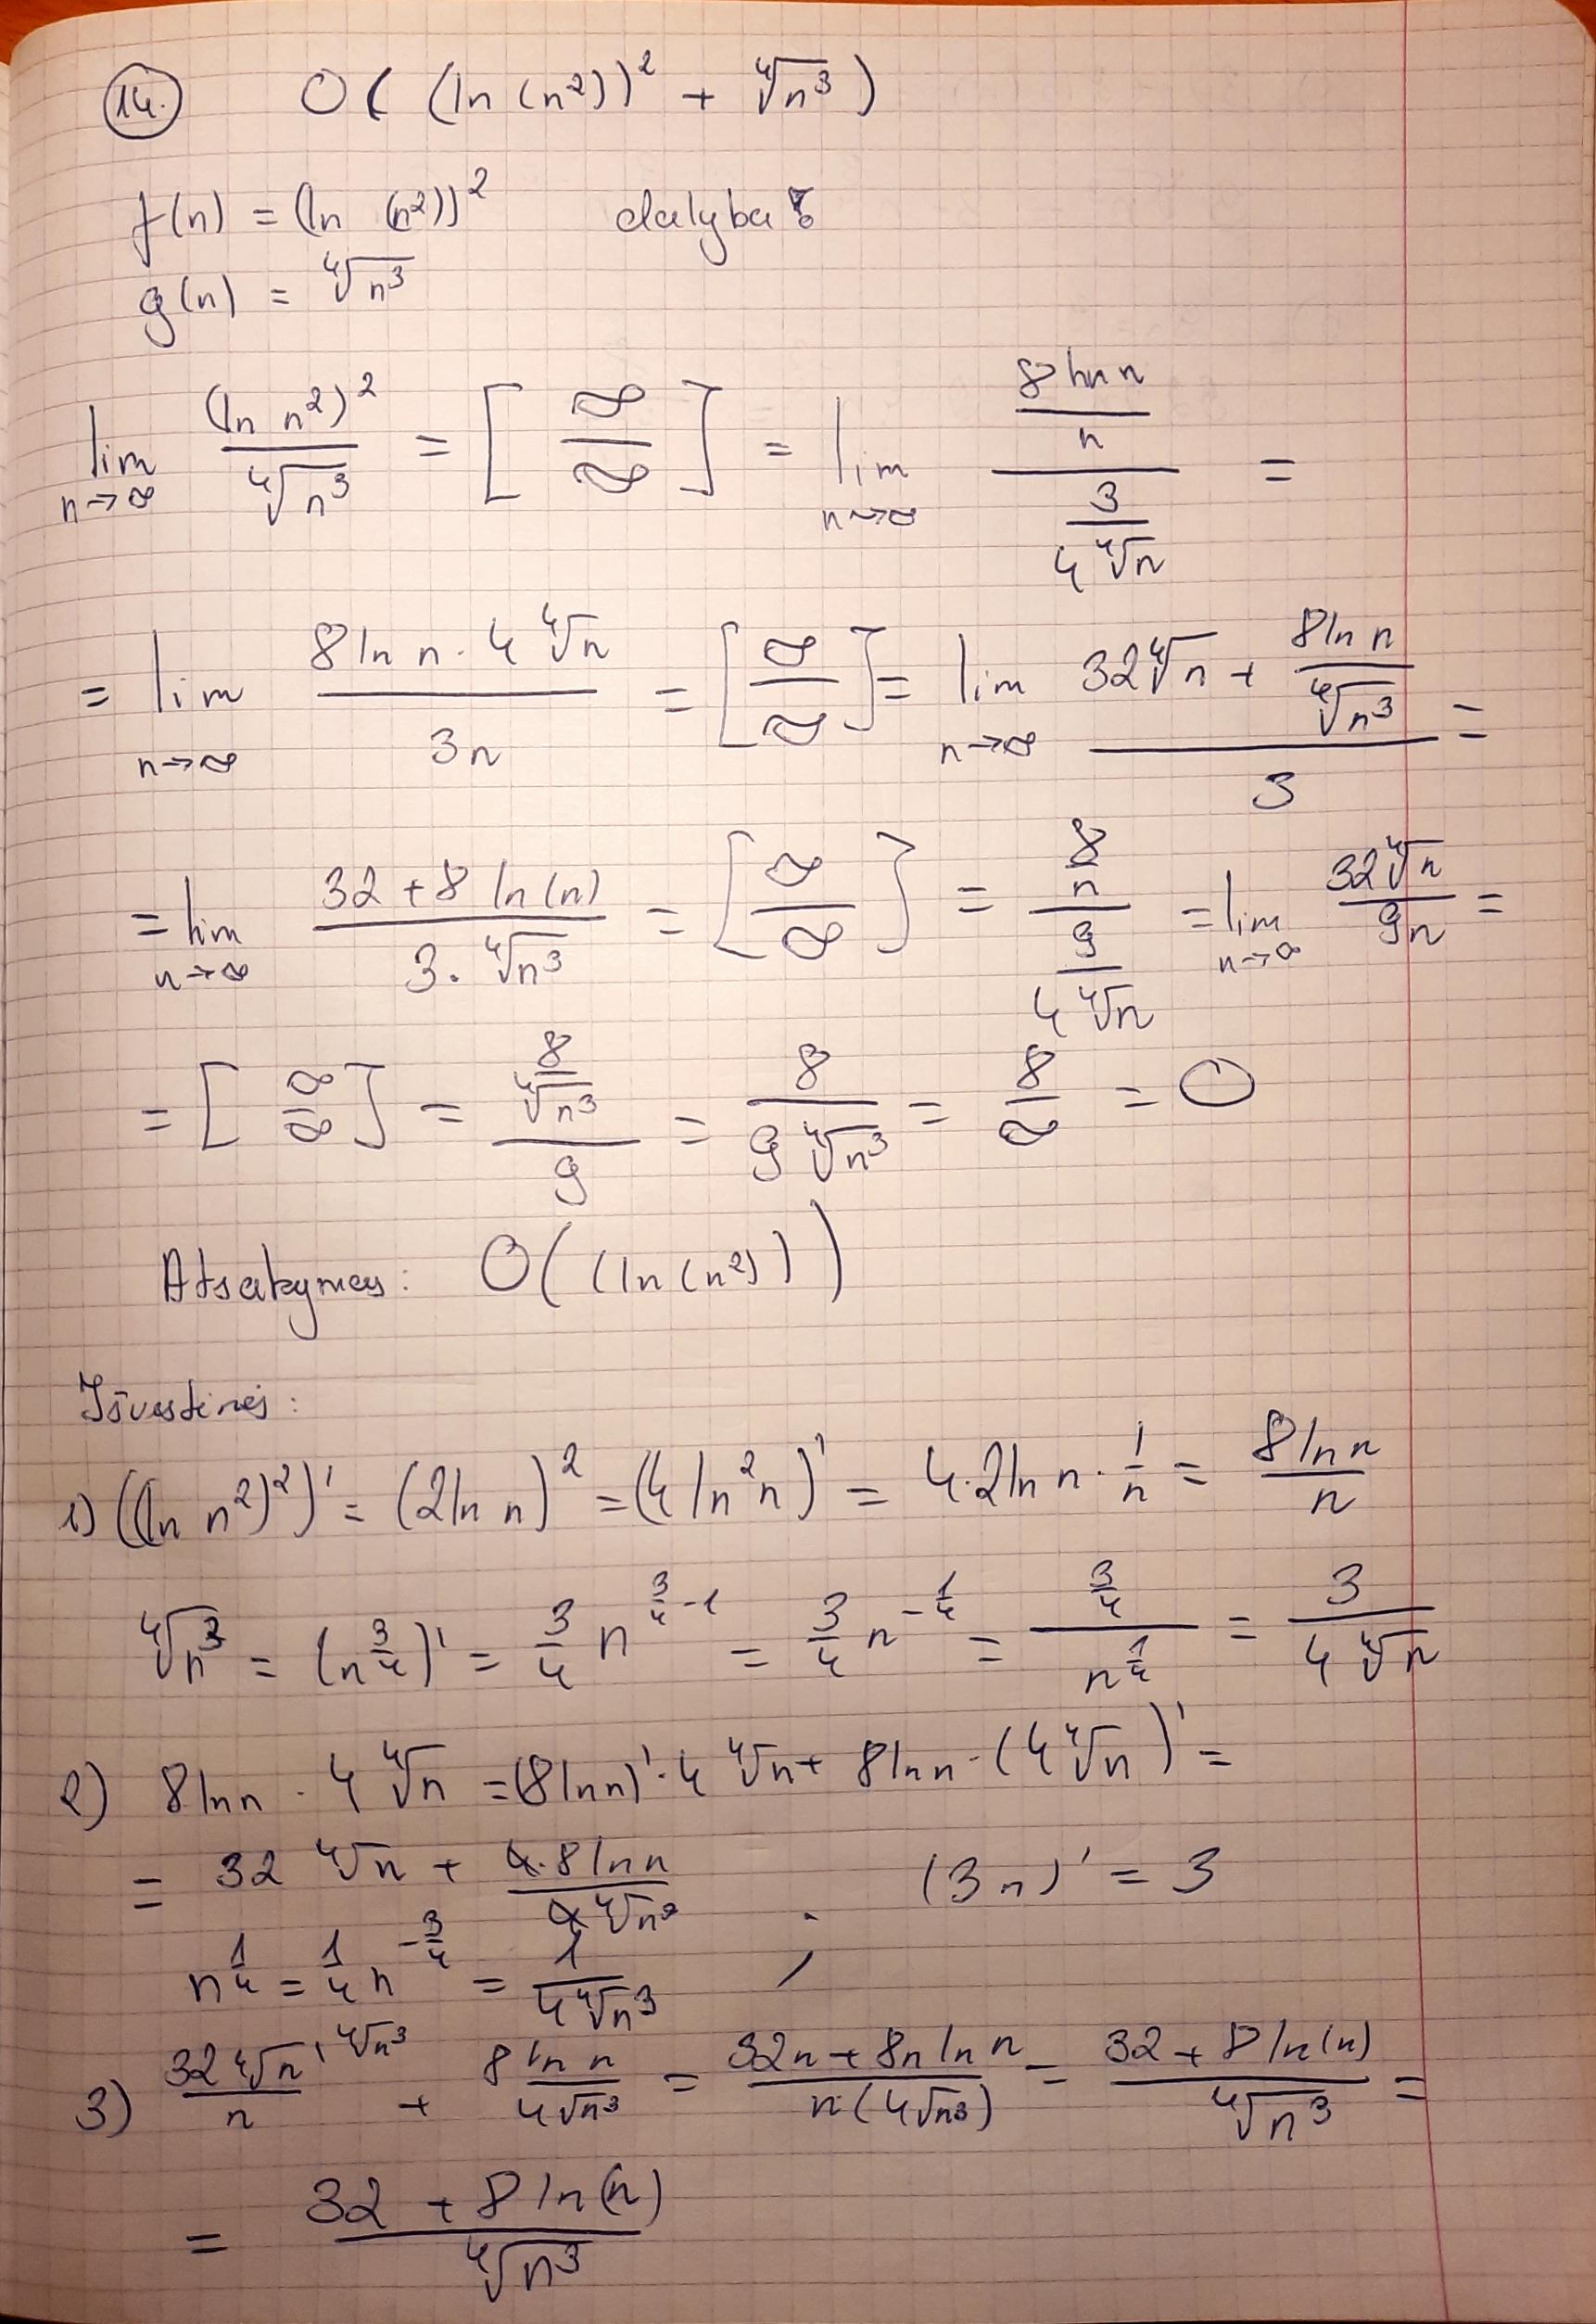 14. O( (ln (n²))² + ∜n³ )
f(n) = (ln (n²))² dalyba
g(n) = ∜n³
lim n→∞ (ln n²)² / ∜n³ = [ ∞/∞ ] = lim n→∞ (8 ln n / n) / (3 / (4 ∜n)) =
= lim n→∞ (8 ln n · 4 ∜n) / 3n = [ ∞/∞ ] = lim n→∞ (32 ∜n + 8 ln n / ∜n³) / 3 =
= lim n→∞ (32 + 8 ln (n)) / (3 · ∜n³) = [ ∞/∞ ] = (8/n) / (9 / (4 ∜n)) = lim n→∞ 32 ∜n / 9n =
= [ ∞/∞ ] = (8 / ∜n³) / 9 = 8 / (9 ∜n³) = 8/∞ = 0
Atsakymas: O( (ln (n²)) )
Išvestinės:
1) ((ln n²)²)' = (2 ln n)² = (4 ln² n)' = 4 · 2 ln n · 1/n = 8 ln n / n
∜n³ = (n^(3/4))' = 3/4 n^(3/4 - 1) = 3/4 n^(-1/4) = (3/4) / n^(1/4) = 3 / (4 ∜n)
2) 8 ln n · 4 ∜n = (8 ln n)' · 4 ∜n + 8 ln n · (4 ∜n)' =
= 32 ∜n + 4 · 8 ln n / (4 ∜n³) ; (3n)' = 3
n^(1/4) = 1/4 n^(-3/4) = 1 / (4 ∜n³)
3) 32 ∜n / n ' ∜n³ + 8 ln n / ∜n³ = (32n + 8n ln n) / (n (∜n³)) = (32 + 8 ln (n)) / ∜n³ =
= (32 + 8 ln (n)) / ∜n³